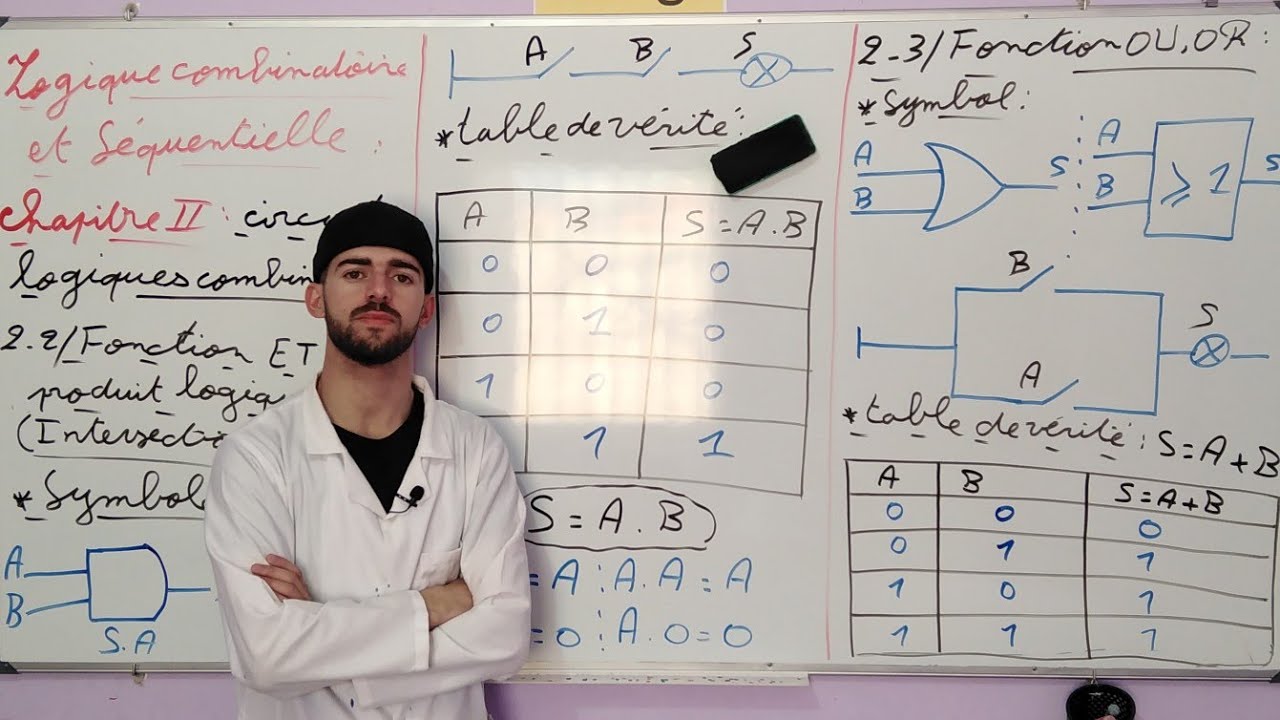 Logique combinatoire
et Séquentielle :
Chapitre II :
logiques
2.2/Fonction ET
produit
(Intersection
* Symbol
A
B
S.A
A B S
* table de vérité :
A B S=A.B
0 0 0
0 1 0
1 0 0
1 1
S=A.B
=A : A.A=A
=0 : A.0=0
2-3/Fonction OU, OR :
* Symbol :
A
B
S
A
B
≥1
S
B
A
S
* table de vérité : S=A+B
A B S=A+B
0 0 0
0 1 1
1 0 1
1 1 1